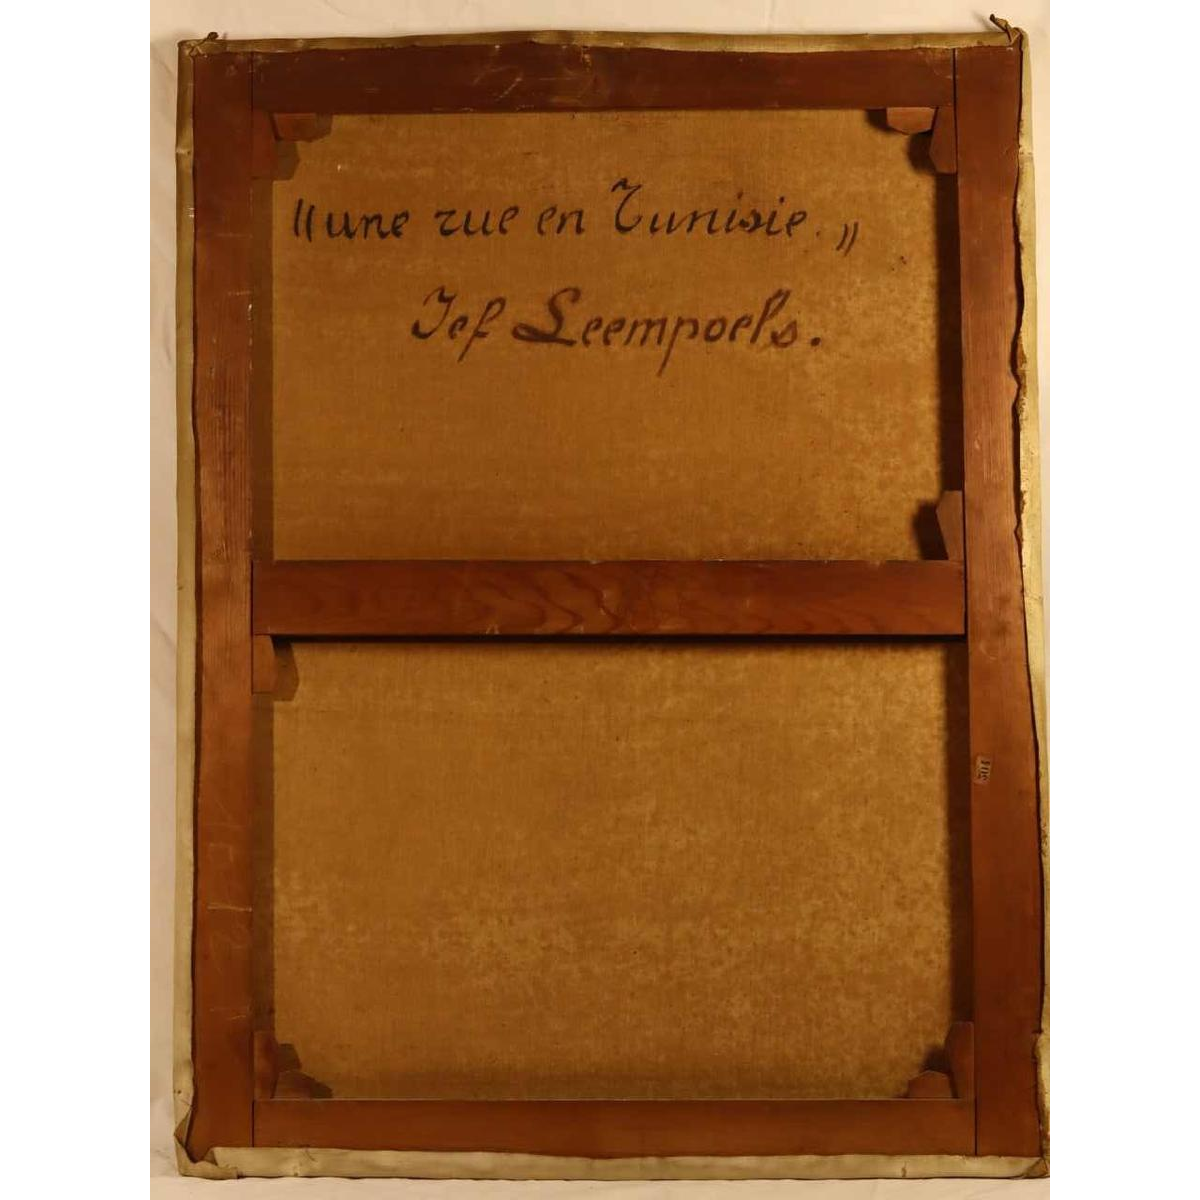 "une rue en Tunisie."
Jef Leempoels.